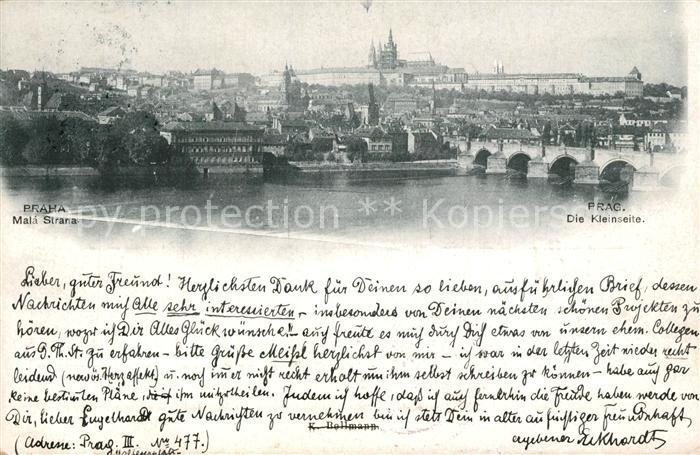 PRAHA
Malá Strana.
PRAG.
Die Kleinseite.
Lieber, guter Freund! Herzlichsten Dank für Deinen so lieben, ausführlichen Brief, dessen
Nachrichten mich Alle sehr interessierten – insbesonders von Deinen nächsten schönen Projekten zu
hören, wozu ich Dir Alles Glück wünsche! – auch freute es mich durch Dich etwas von unsern ehem. Collegen
aus P. Th. St. zu erfahren – bitte Grüße Meißl herzlichst von mir – ich war in der letzten Zeit wieder recht
leidend (nervös. Herzaffekt) u. noch immer nicht recht erholt um ihm selbst schreiben zu können – habe auch gar
keine bestimten Pläne, ihm mitzutheilen. Indem ich hoffe, daß ich auch fernerhin die Freude haben werde von
Dir, lieber Engelhardt gute Nachrichten zu vernehmen bin ich stets Dein in alter aufrichtiger Freundschaft
K. Bellmann
(Adresse: Prag III. No 477.)
ergebener Eckhardt